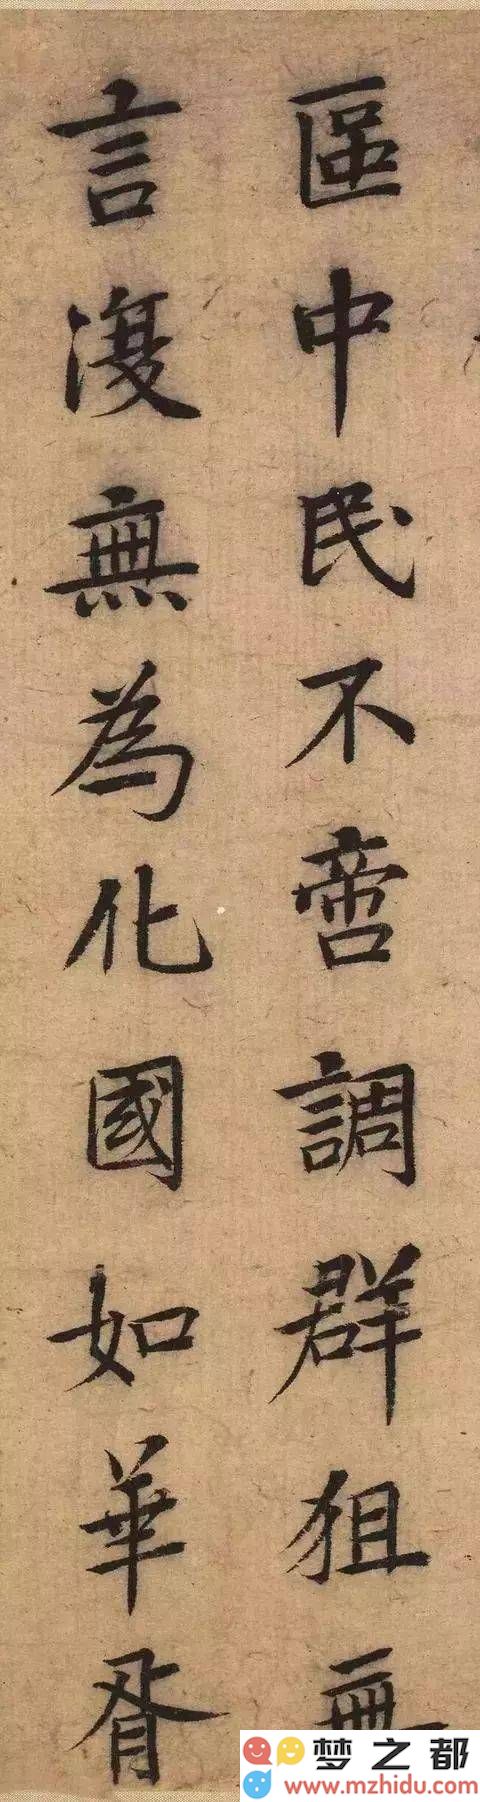 區中民不啻調群狙無
言復無為化國如華胥
梦之都
www.mzhidu.com